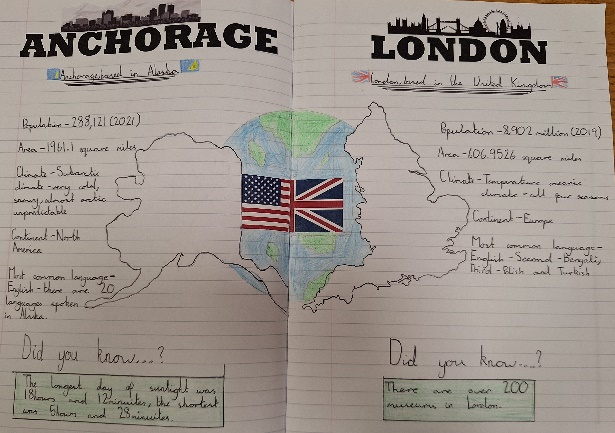 ANCHORAGE
Anchorage, based in Alaska
Population - 288,121 (2021)
Area - 1961.1 square miles
Climate - Subarctic
climate - very cold,
snowy, almost arctic
unpredictable
Continent - North
America
Most common language =
English - there are 20
languages spoken
in Alaska.
Did you know...?
The longest day of sunlight was
18hours and 12minutes, the shortest
was 5hours and 28minutes.
LONDON
London, based in the United Kingdom
Population - 8.902 million (2019)
Area - 606.9526 square miles
Climate - Temperature
climate - all four seasons
Continent - Europe
Most common language -
English - Second - Bengali,
Third - and Turkish
Did you know...?
There are over 200
museums in London.